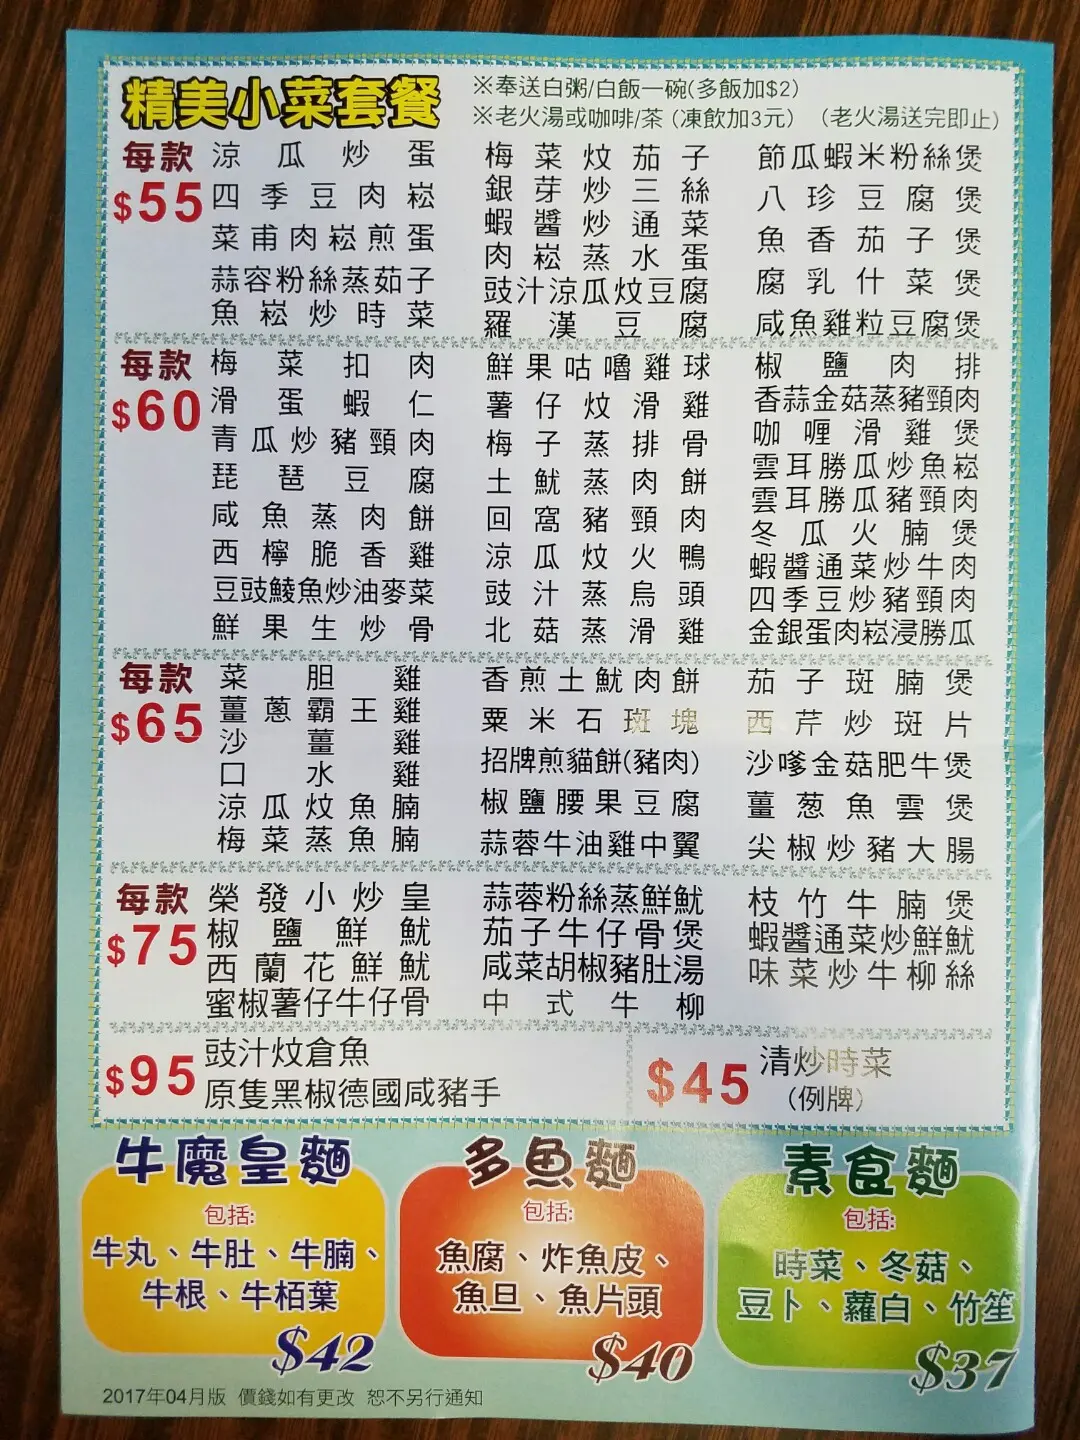 精美小菜套餐
※奉送白粥/白飯一碗(多飯加$2)
※老火湯或咖啡/茶 (凍飲加3元) (老火湯送完即止)
每款
$55
涼瓜炒蛋
四季豆肉崧
菜甫肉崧煎蛋
蒜容粉絲蒸茄子
魚崧炒時菜
梅菜炆茄子
銀芽炒三絲
蝦醬炒通菜
肉崧蒸水蛋
豉汁涼瓜炆豆腐
羅漢豆腐
節瓜蝦米粉絲煲
八珍豆腐煲
魚香茄子煲
腐乳什菜煲
咸魚雞粒豆腐煲
每款
$60
梅菜扣肉
滑蛋蝦仁
青瓜炒豬頸肉
琵琶豆腐
咸魚蒸肉餅
西檸脆香雞
豆豉鯪魚炒油麥菜
鮮果生炒骨
鮮果咕嚕雞球
薯仔炆滑雞
梅子蒸排骨
土魷蒸肉餅
回窩豬頸肉
涼瓜炆火鴨
豉汁蒸烏頭
北菇蒸滑雞
椒鹽肉排
香蒜金菇蒸豬頸肉
咖喱滑雞煲
雲耳勝瓜炒魚崧
雲耳勝瓜豬頸肉
冬瓜火腩煲
蝦醬通菜炒牛肉
四季豆炒豬頸肉
金銀蛋肉崧浸勝瓜
每款
$65
菜胆雞
薑蔥霸王雞
沙薑雞
口水雞
涼瓜炆魚腩
梅菜蒸魚腩
香煎土魷肉餅
粟米石斑塊
招牌煎貓餅(豬肉)
椒鹽腰果豆腐
蒜蓉牛油雞中翼
茄子斑腩煲
西芹炒斑片
沙嗲金菇肥牛煲
薑葱魚雲煲
尖椒炒豬大腸
每款
$75
榮發小炒皇
椒鹽鮮魷
西蘭花鮮魷
蜜椒薯仔牛仔骨
蒜蓉粉絲蒸鮮魷
茄子牛仔骨煲
咸菜胡椒豬肚湯
中式牛柳
枝竹牛腩煲
蝦醬通菜炒鮮魷
味菜炒牛柳絲
$95
豉汁炆倉魚
原隻黑椒德國咸豬手
$45
清炒時菜
(例牌)
牛魔皇麵
包括:
牛丸、牛肚、牛腩、
牛根、牛栢葉
$42
多魚麵
包括:
魚腐、炸魚皮、
魚旦、魚片頭
$40
素食麵
包括:
時菜、冬菇、
豆卜、蘿白、竹笙
$37
2017年04月版 價錢如有更改 恕不另行通知